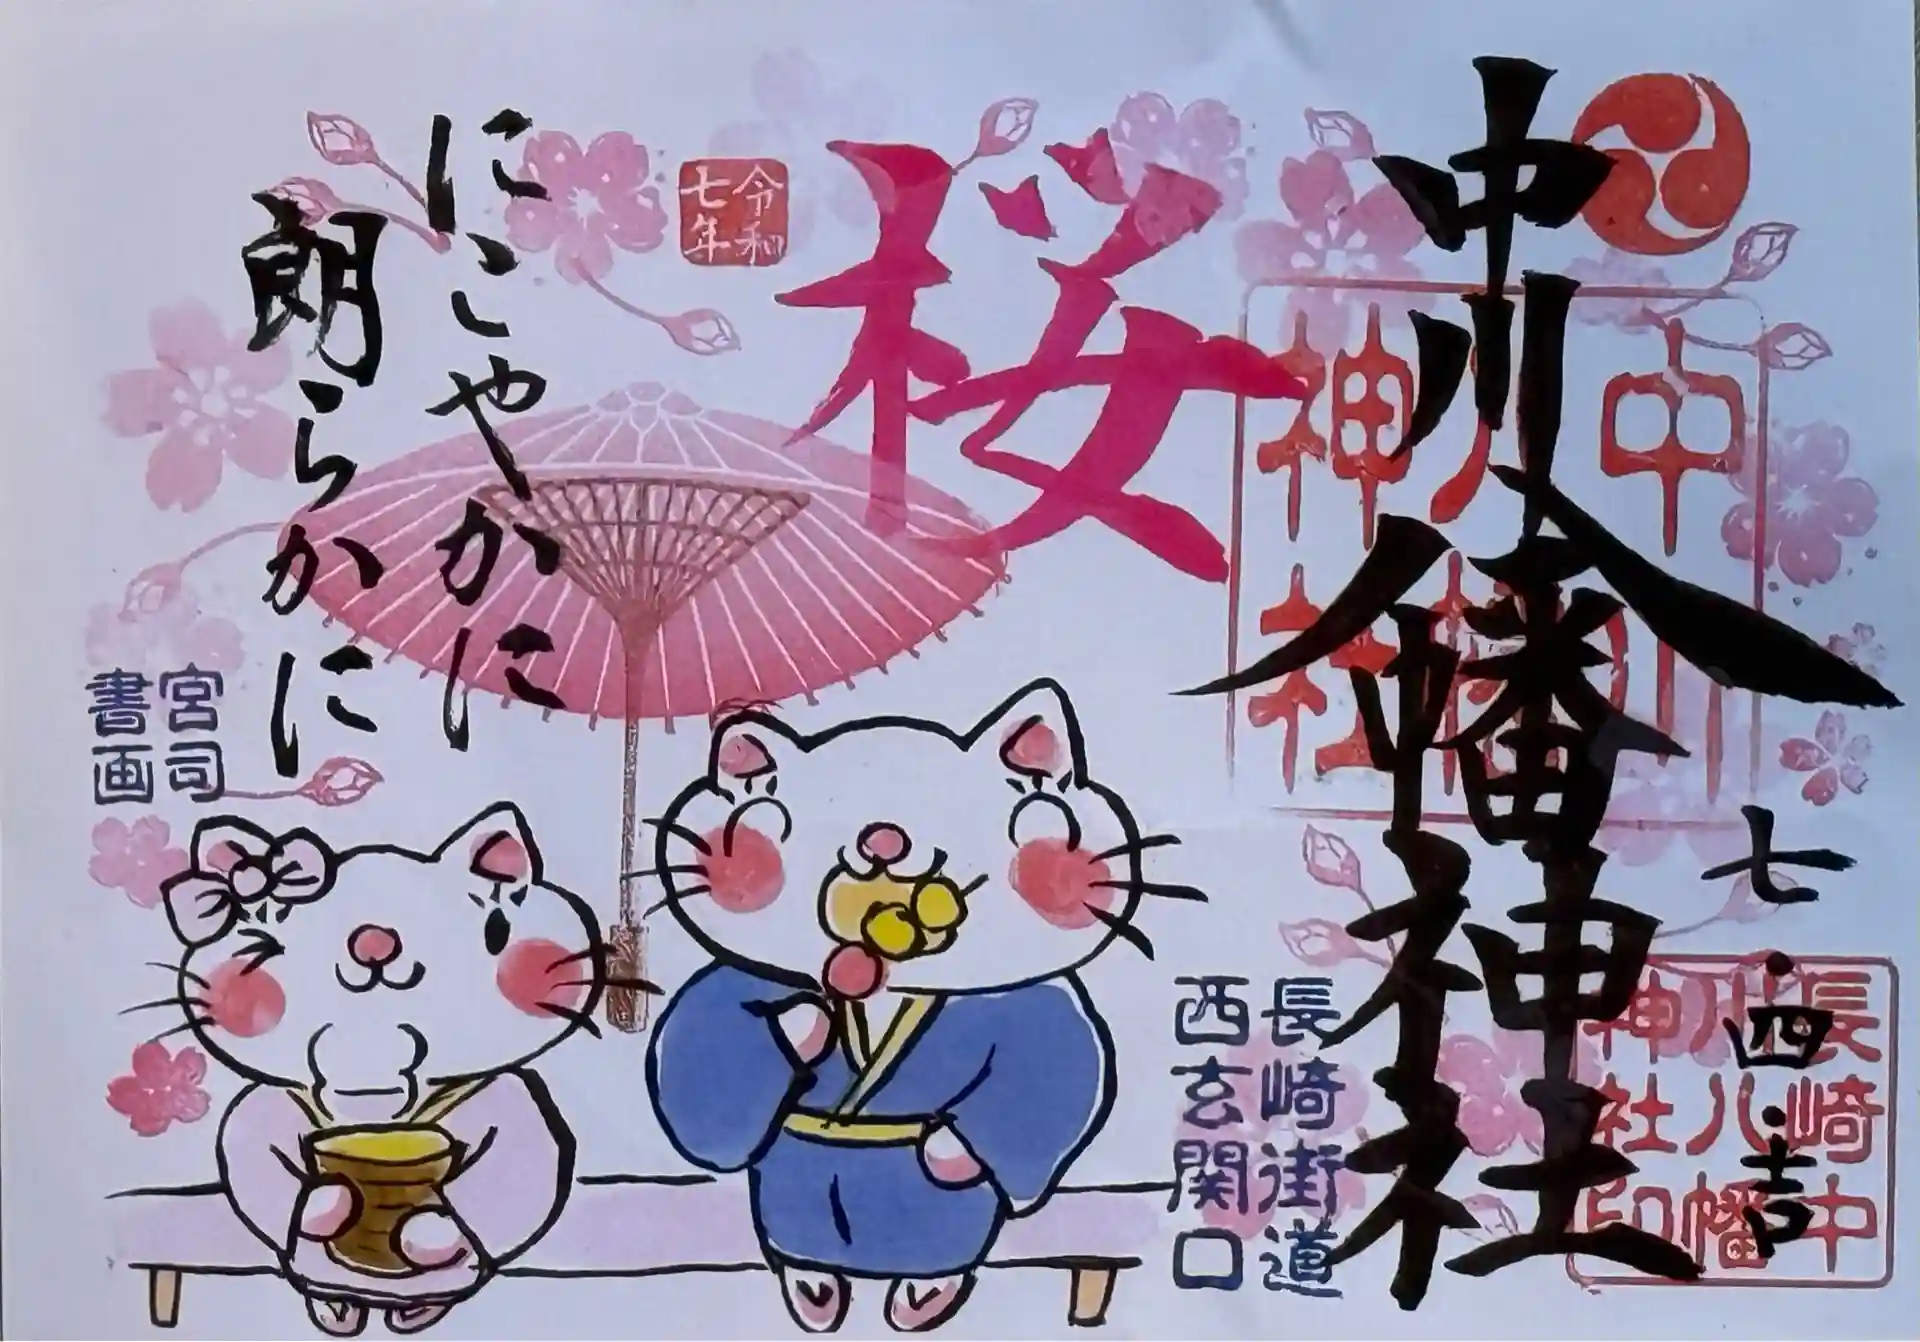 中川八幡神社
七・四・吉
中川
八幡
神社
長崎中
川八幡
神社印
長崎街道
西玄関口
桜
令和
七年
にこやかに
朗らかに
宮司
書画